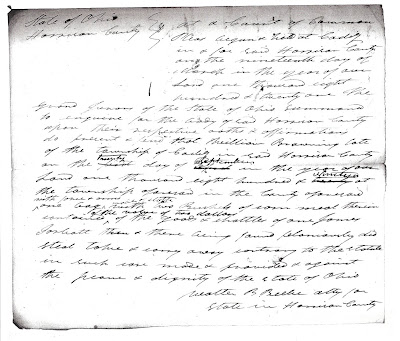 State of Ohio
Harrison County
At a Court of Common
Pleas begun & held at Cadiz
in & for said Harrison County
on the nineteenth day of
March in the year of our
Lord one thousand eight
hundred & twenty one. The
Grand Jurors of the State of Ohio summoned
to inquire for the body of said Harrison County
upon their respective oaths & affirmations
do present & find that William Browning late
of the township of Cadiz in said Harrison County
on the day of September in the year of our
Lord one thousand eight hundred &
the township aforesaid in the County aforesaid
with force & arms
one bag bushels of corn meal therein
of the value of two dollars
contained, of the goods & chattles of one James
then & there being found feloniously did
steal take & carry away contrary to the statute
in such case made & provided & against
the peace & dignity of the State of Ohio
Walter B Beebe atty for
State in Harrison County